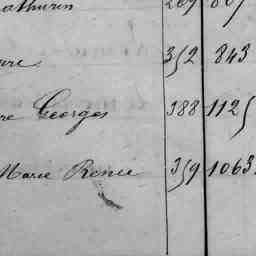 athurin 269 807
352 843
re Georges 388 1125
Marie Renée 359 1063